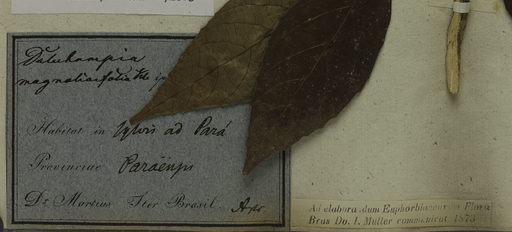 Dalechampia
magnoliaefolia
Habitat in sylvis ad Pará
Provinciae Paraënsis
Dr. Martius Iter Brasil. Apr
Ad elaborandum Euphorbiaceas in Flora
Bras Do. I. Müller communicat 1873